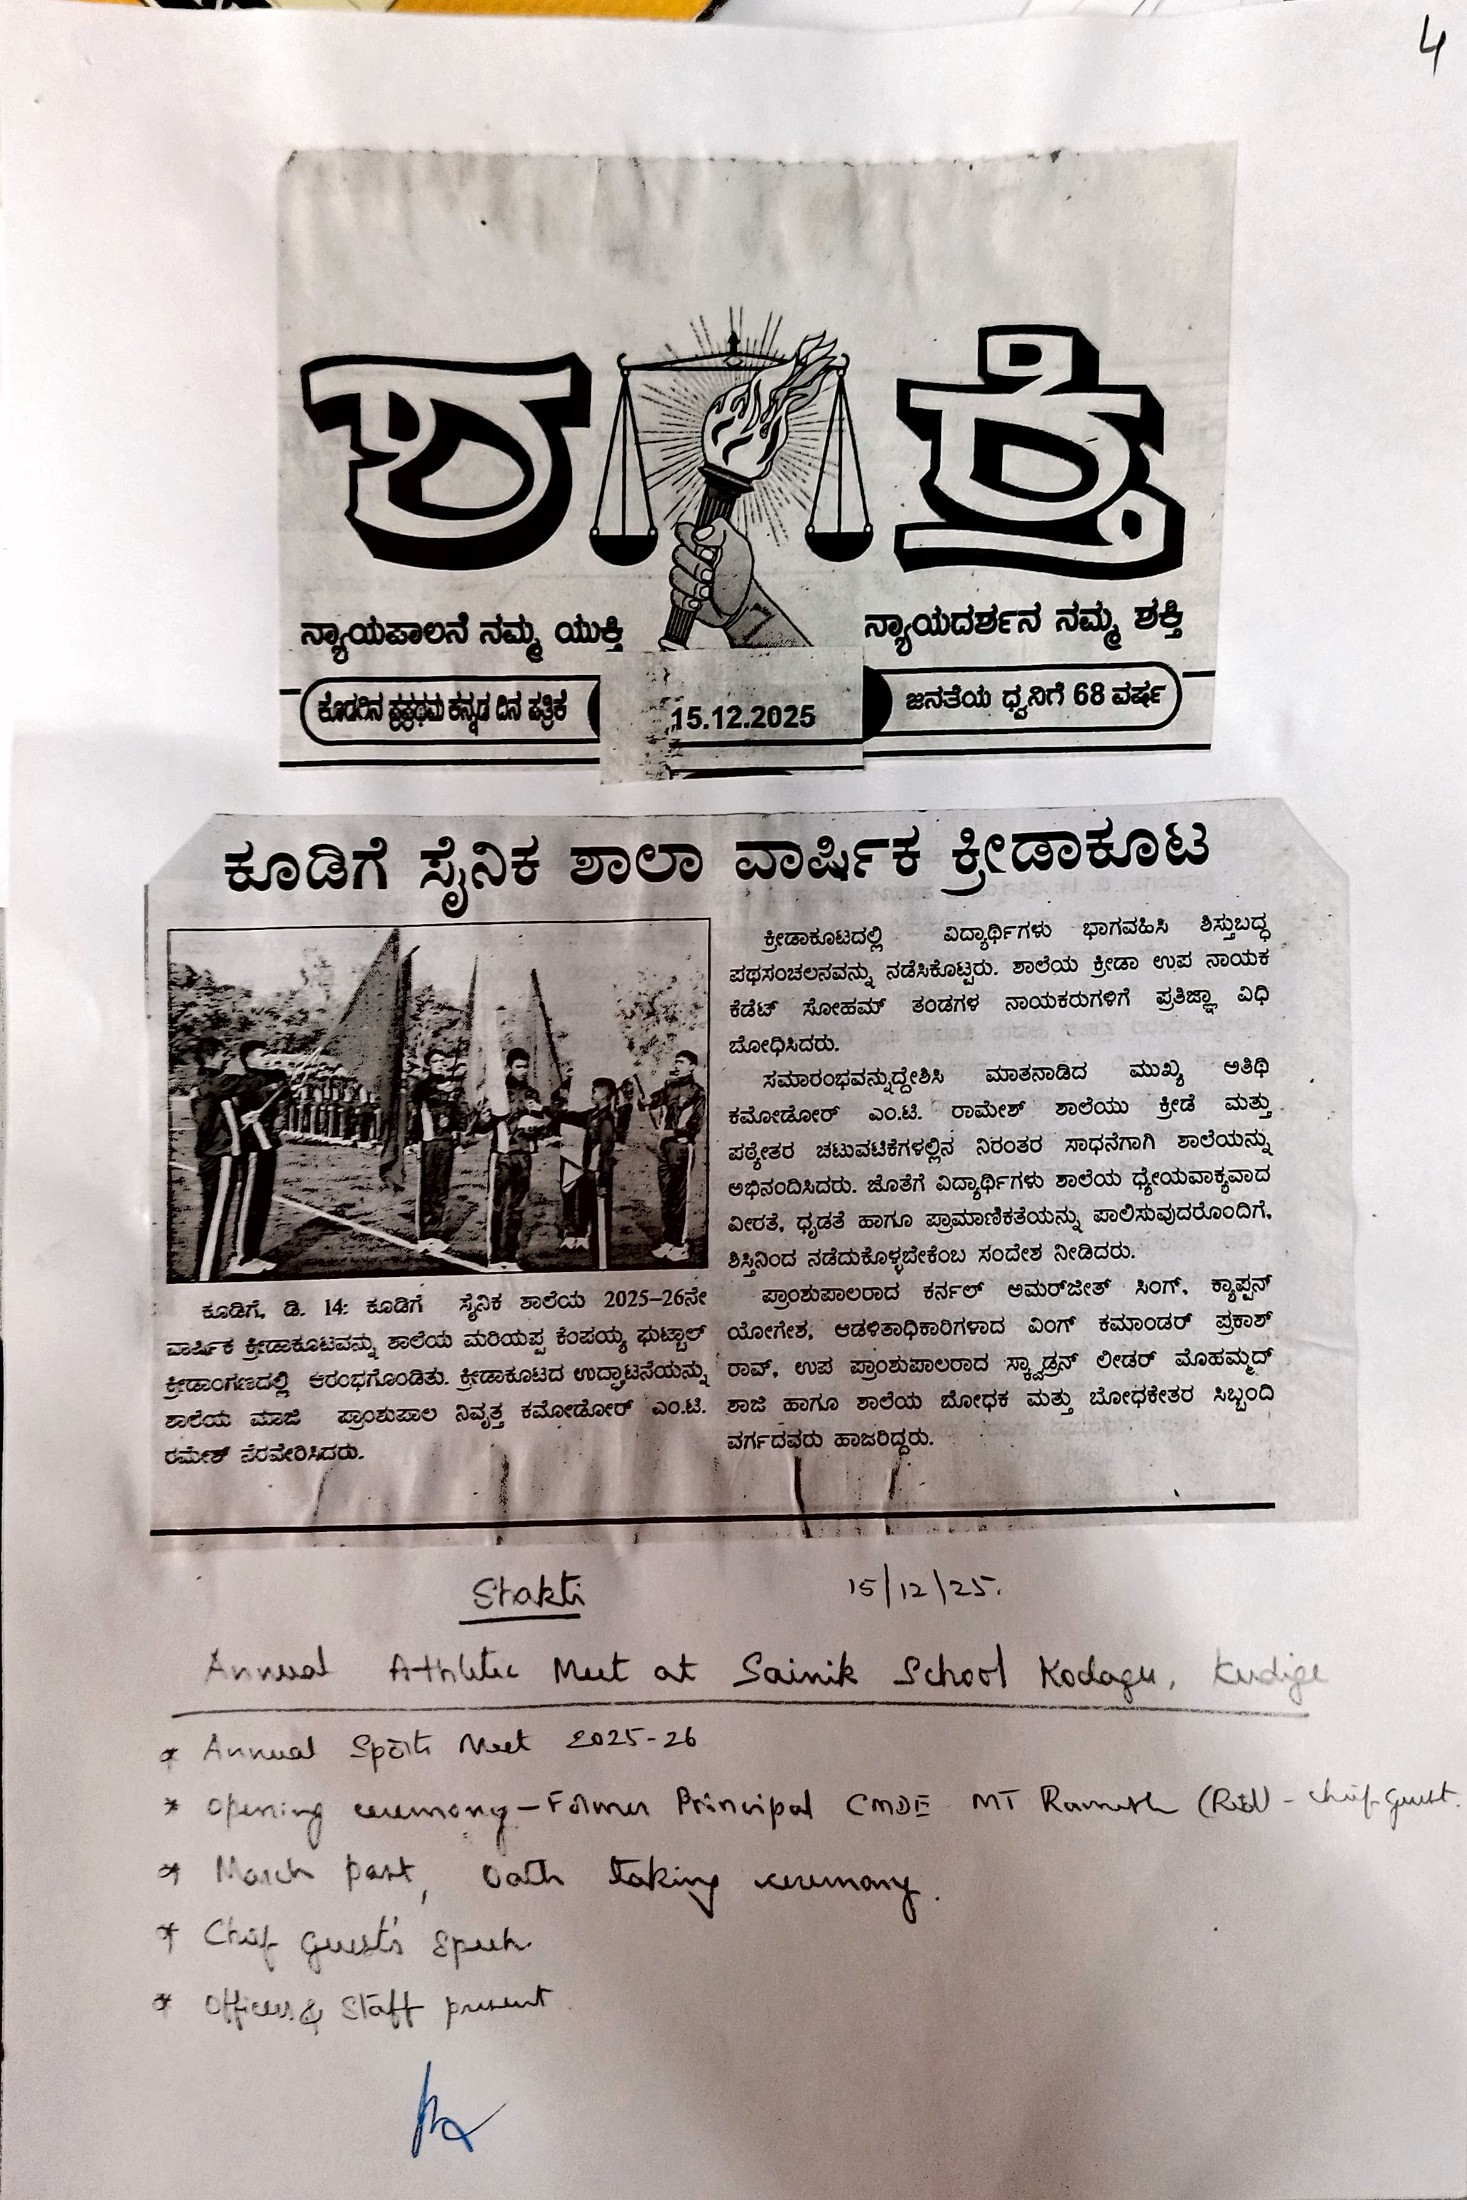 4
ಶಕ್ತಿ
ನ್ಯಾಯಪಾಲನೆ ನಮ್ಮ ಯುಕ್ತಿ
ನ್ಯಾಯದರ್ಶನ ನಮ್ಮ ಶಕ್ತಿ
ಕೊಡಗಿನ ಪ್ರಪ್ರಥಮ ಕನ್ನಡ ದಿನ ಪತ್ರಿಕೆ
15.12.2025
ಜನತೆಯ ಧ್ವನಿಗೆ 68 ವರ್ಷ
ಕೂಡಿಗೆ ಸೈನಿಕ ಶಾಲಾ ವಾರ್ಷಿಕ ಕ್ರೀಡಾಕೂಟ
ಕೂಡಿಗೆ, ಡಿ. 14: ಕೂಡಿಗೆ ಸೈನಿಕ ಶಾಲೆಯ 2025–26ನೇ
ವಾರ್ಷಿಕ ಕ್ರೀಡಾಕೂಟವನ್ನು ಶಾಲೆಯ ಮರಿಯಪ್ಪ ಕೆಂಪಯ್ಯ ಫುಟ್ಬಾಲ್
ಕ್ರೀಡಾಂಗಣದಲ್ಲಿ ಆರಂಭಗೊಂಡಿತು. ಕ್ರೀಡಾಕೂಟದ ಉದ್ಘಾಟನೆಯನ್ನು
ಶಾಲೆಯ ಮಾಜಿ ಪ್ರಾಂಶುಪಾಲ ನಿವೃತ್ತ ಕಮೋಡೋರ್ ಎಂ.ಟಿ.
ರಮೇಶ್ ನೆರವೇರಿಸಿದರು.
ಕ್ರೀಡಾಕೂಟದಲ್ಲಿ ವಿದ್ಯಾರ್ಥಿಗಳು ಭಾಗವಹಿಸಿ ಶಿಸ್ತುಬದ್ಧ
ಪಥಸಂಚಲನವನ್ನು ನಡೆಸಿಕೊಟ್ಟರು. ಶಾಲೆಯ ಕ್ರೀಡಾ ಉಪ ನಾಯಕ
ಕೆಡೆಟ್ ಸೋಹಮ್ ತಂಡಗಳ ನಾಯಕರುಗಳಿಗೆ ಪ್ರತಿಜ್ಞಾ ವಿಧಿ
ಬೋಧಿಸಿದರು.
ಸಮಾರಂಭವನ್ನುದ್ದೇಶಿಸಿ ಮಾತನಾಡಿದ ಮುಖ್ಯ ಅತಿಥಿ
ಕಮೋಡೋರ್ ಎಂ.ಟಿ. ರಾಮೇಶ್ ಶಾಲೆಯು ಕ್ರೀಡೆ ಮತ್ತು
ಪಠ್ಯೇತರ ಚಟುವಟಿಕೆಗಳಲ್ಲಿನ ನಿರಂತರ ಸಾಧನೆಗಾಗಿ ಶಾಲೆಯನ್ನು
ಅಭಿನಂದಿಸಿದರು. ಜೊತೆಗೆ ವಿದ್ಯಾರ್ಥಿಗಳು ಶಾಲೆಯ ಧ್ಯೇಯವಾಕ್ಯವಾದ
ವೀರತೆ, ಧೃಡತೆ ಹಾಗೂ ಪ್ರಾಮಾಣಿಕತೆಯನ್ನು ಪಾಲಿಸುವುದರೊಂದಿಗೆ,
ಶಿಸ್ತಿನಿಂದ ನಡೆದುಕೊಳ್ಳಬೇಕೆಂಬ ಸಂದೇಶ ನೀಡಿದರು.
ಪ್ರಾಂಶುಪಾಲರಾದ ಕರ್ನಲ್ ಅಮರ್‌ಜೀತ್ ಸಿಂಗ್, ಕ್ಯಾಪ್ಟನ್
ಯೋಗೇಶ, ಆಡಳಿತಾಧಿಕಾರಿಗಳಾದ ವಿಂಗ್ ಕಮಾಂಡರ್ ಪ್ರಕಾಶ್
ರಾವ್, ಉಪ ಪ್ರಾಂಶುಪಾಲರಾದ ಸ್ಕ್ವಾಡ್ರನ್ ಲೀಡರ್ ಮೊಹಮ್ಮದ್
ಶಾಜಿ ಹಾಗೂ ಶಾಲೆಯ ಬೋಧಕ ಮತ್ತು ಬೋಧಕೇತರ ಸಿಬ್ಬಂದಿ
ವರ್ಗದವರು ಹಾಜರಿದ್ದರು.
Shakti 15/12/25.
Annual Athletic Meet at Sainik School Kodagu, Kudige
* Annual Sports Meet 2025-26
* Opening ceremony – Former Principal CMDE MT Ramesh (Retd) - chief guest.
* March past, Oath taking ceremony.
* Chief guest's speech
* Officers & Staff present